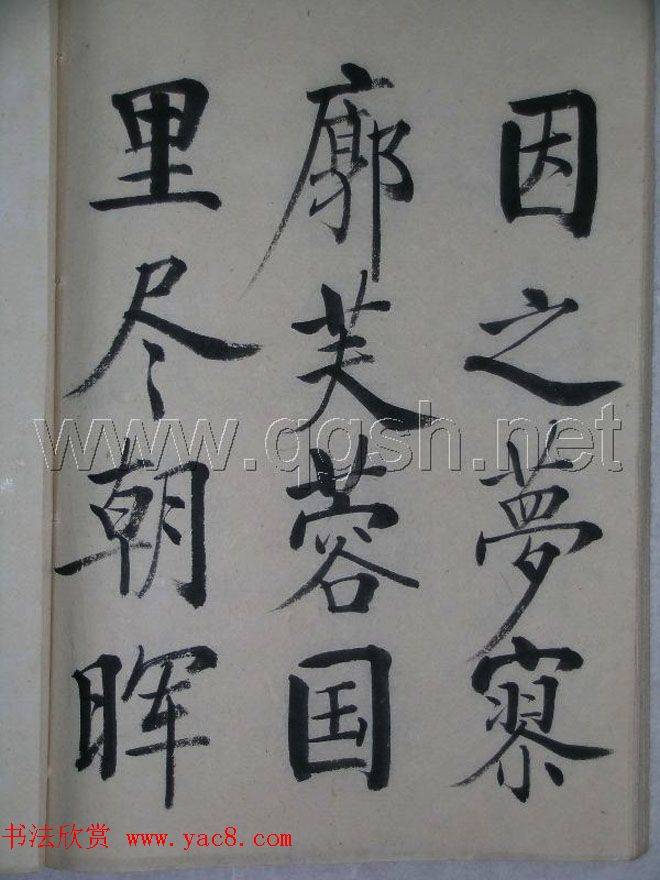 因之夢寥
廓芙蓉国
里尽朝晖
www.qgsh.net
书法欣赏 www.yac8.com